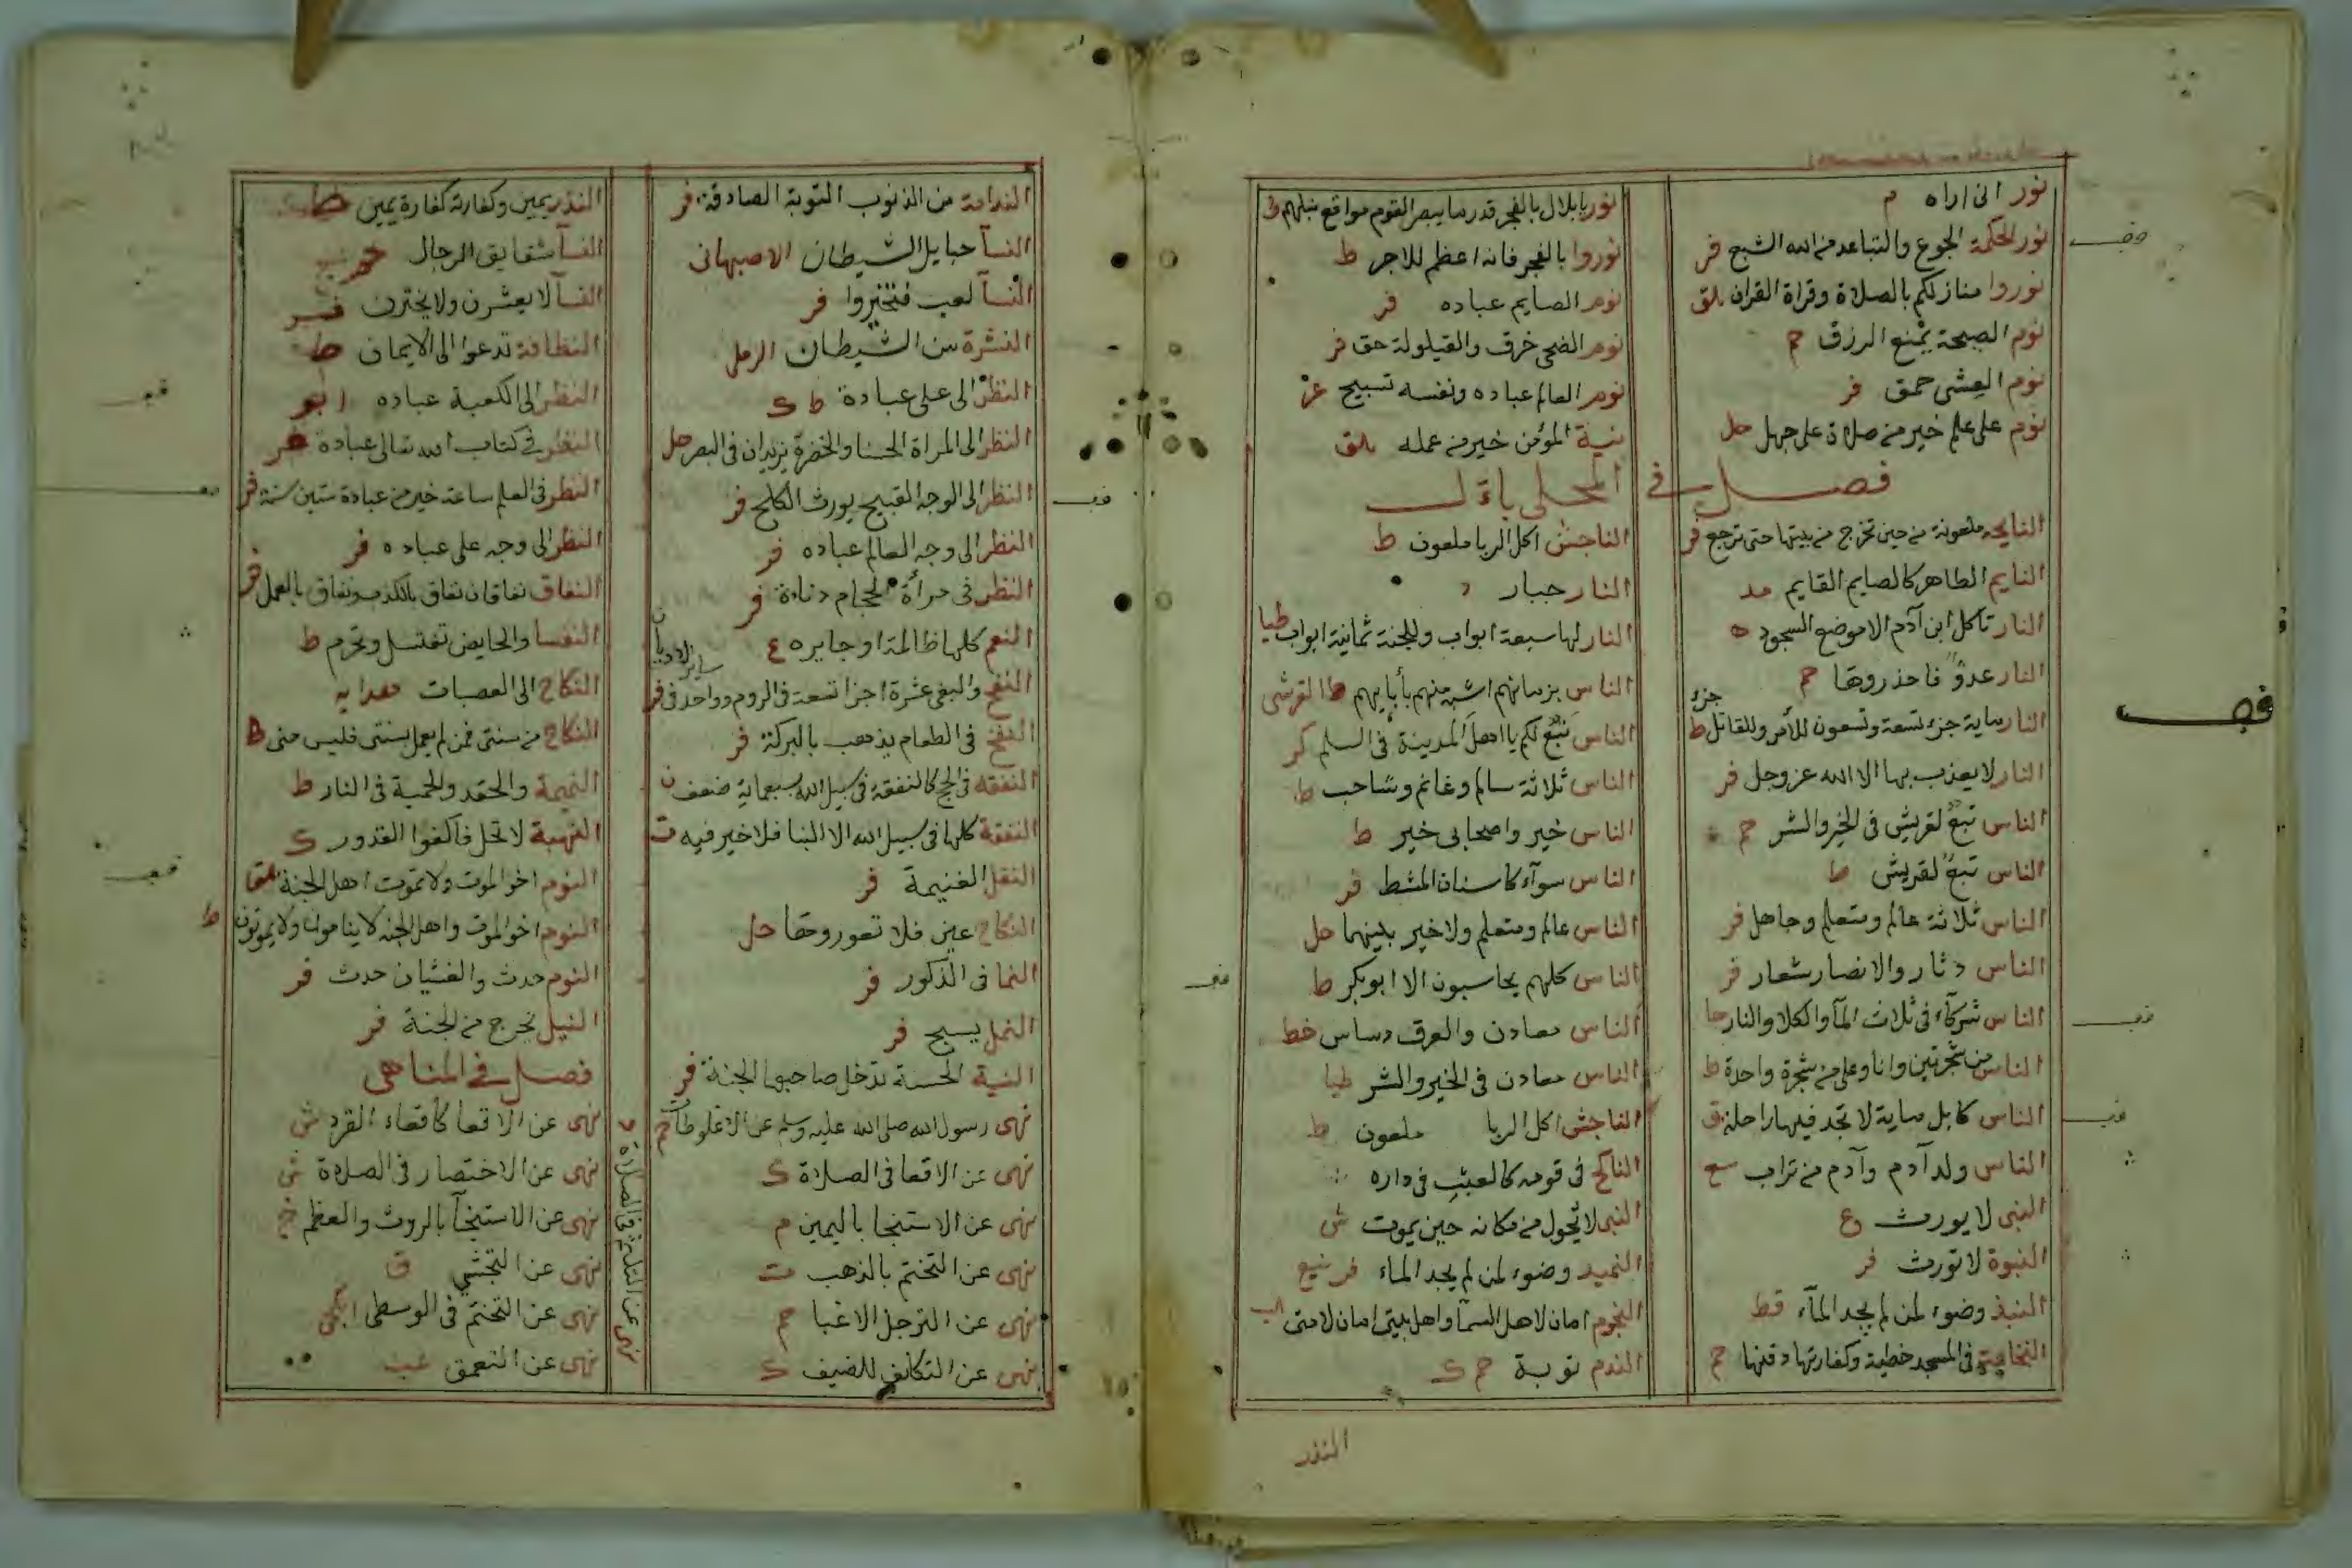 نور انى اراه م
نور الحكمة الجوع والتباعد من الله الشبع فر
نوروا منازلكم بالصلاة وقراة القران بلق
نوم الصبحة يمنع الرزق حم
نوم العشى حمق فر
نوم على علم خير من صلاة على جهل حل
نور يا بلال بالفجر قدر ما يبصر القوم مواقع نبلهم ط
نوروا بالفجر فانه اعظم للاجر ط
نوم الصايم عباده فر
نوم الضحى خرق والقيلولة حق فر
نوم العالم عباده ونفسه تسبيح عز
نية المؤمن خير من عمله بلق
فصل فى المحلى بال
النايحه ملعونة من حين تخرج من بيتها حتى ترجع فر
النايم الطاهر كالصايم القايم مد
النار تأكل ابن آدم الا موضع السجود ه
النار عدوّ فاحذروها حم
النار ماية جزء تسعة وتسعون للآمر وللقاتل جزء ط
النار لا يعذب بها الا الله عز وجل فر
الناس تبع لقريش فى الخير والشر حم
الناس تبع لقريش ط
الناس ثلاثة عالم ومتعلم وجاهل فر
الناس دثار والانصار شعار فر
الناس شركآء فى ثلاث المآ والكلا والنار حا
الناس من شجرتين وانا وعلى من شجرة واحدة ط
الناس كابل ماية لا تجد فيها راحلة ق
الناس ولد آدم وآدم من تراب سع
النبى لا يورث ع
النبوة لا تورث فر
النبيذ وضوء لمن لم يجد المآء قط
النخاعة فى المسجد خطية وكفارتها دفنها حم
الناجش اكل الربا ملعون ط
النار جبار د
النار لها سبعة ابواب وللجنة ثمانية ابواب طيا
الناس بزمانهم اشبه منهم بأبايهم القرشى
الناس تبع لكم يا اهل المدينة فى العلم كر
الناس ثلاثة سالم وغانم وشاحب ط
الناس خير واصحابى خير ط
الناس سوآء كاسنان المشط فر
الناس عالم ومتعلم ولا خير بينهما حل
الناس كلهم يحاسبون الا ابو بكر ط
الناس معادن والعرق دساس خط
الناس معادن فى الخير والشر طيا
الناجش اكل الربا ملعون ط
الناكح فى قومه كالعشب فى داره
النبى لا يحول من مكانه حين يموت ش
النبيد وضوء لمن لم يجد الماء فر
النجوم امان لاهل السمآ واهل بيتى امان لامتى
الندم توبة حم ك
النذر
الندامة من الذنوب التوبة الصادقة فر
النسآ حبايل الشيطان الاصبهانى
النسآ لعب فتخيروا فر
النشرة من الشيطان
النظر الى على عبادة ط ك
النظر الى المراة الحسنا والخضرة يزيدان فى البصر حل
النظر الى الوجه القبيح يورث الكلح فر
النظر الى وجه العالم عباده فر
النظر فى مرآة الحجام دناءة فر
النعم كلها ظالمة او جايره ع
والبغى عشرة اجزا تسعة فى الروم وواحد فى
النفخ فى الطعام يذهب بالبركة فر
النفقه فى الحج كالنفقة فى سبيل الله بسبعماية ضعف ن
النفقة كلها فى سبيل الله الا البنا فلا خير فيه ت
النفل الغنيمة فر
النكاح عين فلا تعوروها حل
النما فى الذكور فر
النمل يسبح فر
النية الحسنة تدخل صاحبها الجنة فر
نهى رسول الله صلى الله عليه وسلم عن الاغلوطات حم
نهى عن الاقعا فى الصلاة ك
نهى عن الاستنجا باليمين م
نهى عن التختم بالذهب ت
نهى عن الترجل الا غبا حم
نهى عن التكلف للضيف ك
نهى عن التلثم فى الصلاة د
النذر يمين وكفارته كفارة يمين ط
النسآ شقايق الرجال حم
النسآ لا يعشرن ولا يحشرن
النظافة تدعوا الى الايمان ط
النظر الى الكعبة عباده ابو
النظر فى كتاب الله تعالى عبادة فر
النظر فى العلم ساعة خير من عبادة ستين سنة فر
النظر الى وجه على عباده فر
النفاق نفاقان نفاق بالكذب ونفاق بالعمل فر
النفسا والحايض تغتسل وتحرم ط
النكاح الى العصبات هدايه
النكاح من سنتى فمن لم يعمل بسنتى فليس منى ه
النميمة والحقد والحمية فى النار ط
النهبة لا تحل فاكفوا القدور ك
النوم اخو الموت ولا يموت اهل الجنة بلق
النوم اخو الموت واهل الجنة لا ينامون ولا يموتون ط
النوم حدث والغشيان حدث فر
النيل تخرج من الجنة فر
فصل فى المناهى
نهى عن الاقعا كاقعاء القرد ش
نهى عن الاختصار فى الصلاة ش
نهى عن الاستنجآ بالروث والعظم
نهى عن التجشى ق
نهى عن التختم فى الوسطى
نهى عن التعمق